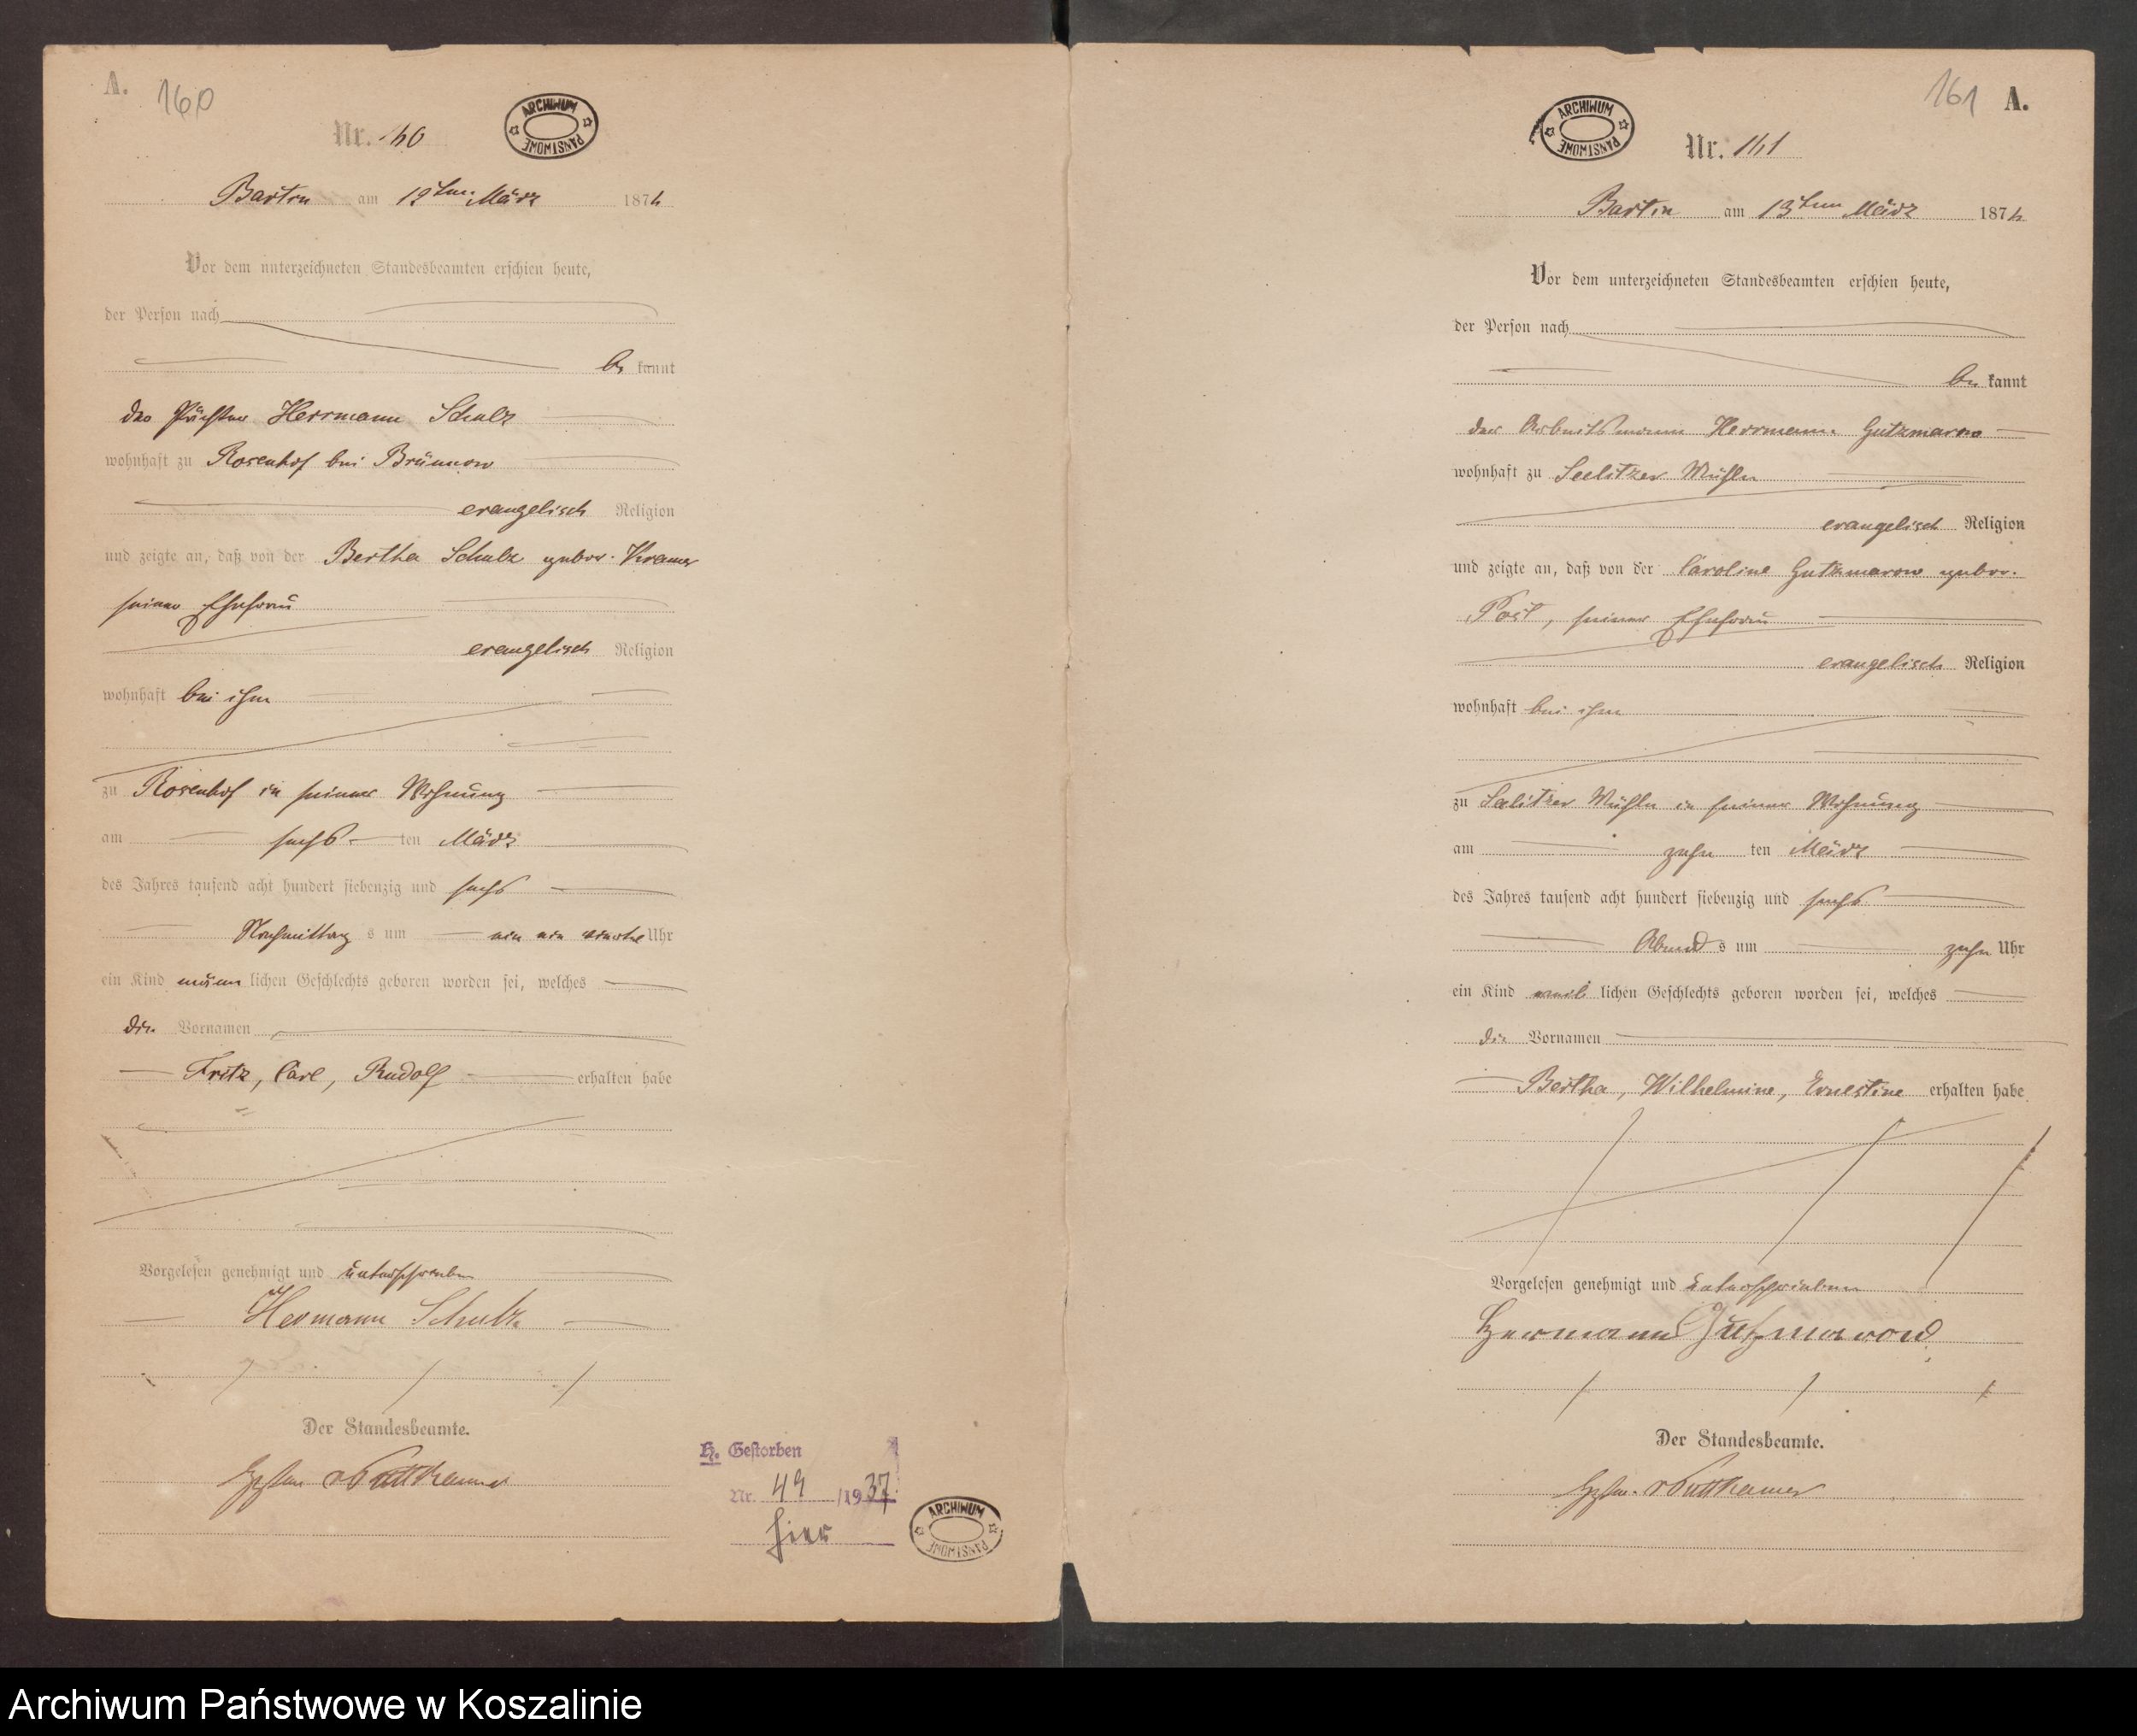 A.
160
Nr. 40
ARCHIWUM PAŃSTWOWE
Bartin am 12ten März 1876
Vor dem unterzeichneten Standesbeamten erschien heute,
der Person nach
be kannt
der Pächter Herrmann Schulz
wohnhaft zu Rosenhof bei Brünnow
evangelisch Religion
und zeigte an, daß von der Bertha Schulz gebor. Kramer
seiner Ehefrau
evangelisch Religion
wohnhaft bei ihm
zu Rosenhof in seiner Wohnung
am sechs ten März
des Jahres tausend acht hundert siebenzig und sechs
Nachmittag s um Uhr
ein Kind männ lichen Geschlechts geboren worden sei, welches
die Vornamen
Fritz, Carl, Rudolf erhalten habe
Vorgelesen genehmigt und unterschrieben
Hermann Schulz
Der Standesbeamte.
v Puttkamer
H. Gestorben
Nr. 49 /1937
hier
ARCHIWUM PAŃSTWOWE
161
A.
ARCHIWUM PAŃSTWOWE
Nr. 41
Bartin am 13ten März 1876
Vor dem unterzeichneten Standesbeamten erschien heute,
der Person nach
be kannt
der Arbeitsmann Herrmann Gutzmarow
wohnhaft zu Seelitzer Mühle
evangelisch Religion
und zeigte an, daß von der Caroline Gutzmarow gebor.
Post, seiner Ehefrau
evangelisch Religion
wohnhaft bei ihm
zu Seelitzer Mühle in seiner Wohnung
am zehn ten März
des Jahres tausend acht hundert siebenzig und sechs
Abend s um zehn Uhr
ein Kind weib lichen Geschlechts geboren worden sei, welches
die Vornamen
Bertha, Wilhelmine, Ernestine erhalten habe
Vorgelesen genehmigt und unterschrieben
Hermann Gutzmarow
Der Standesbeamte.
v Puttkamer
Archiwum Państwowe w Koszalinie